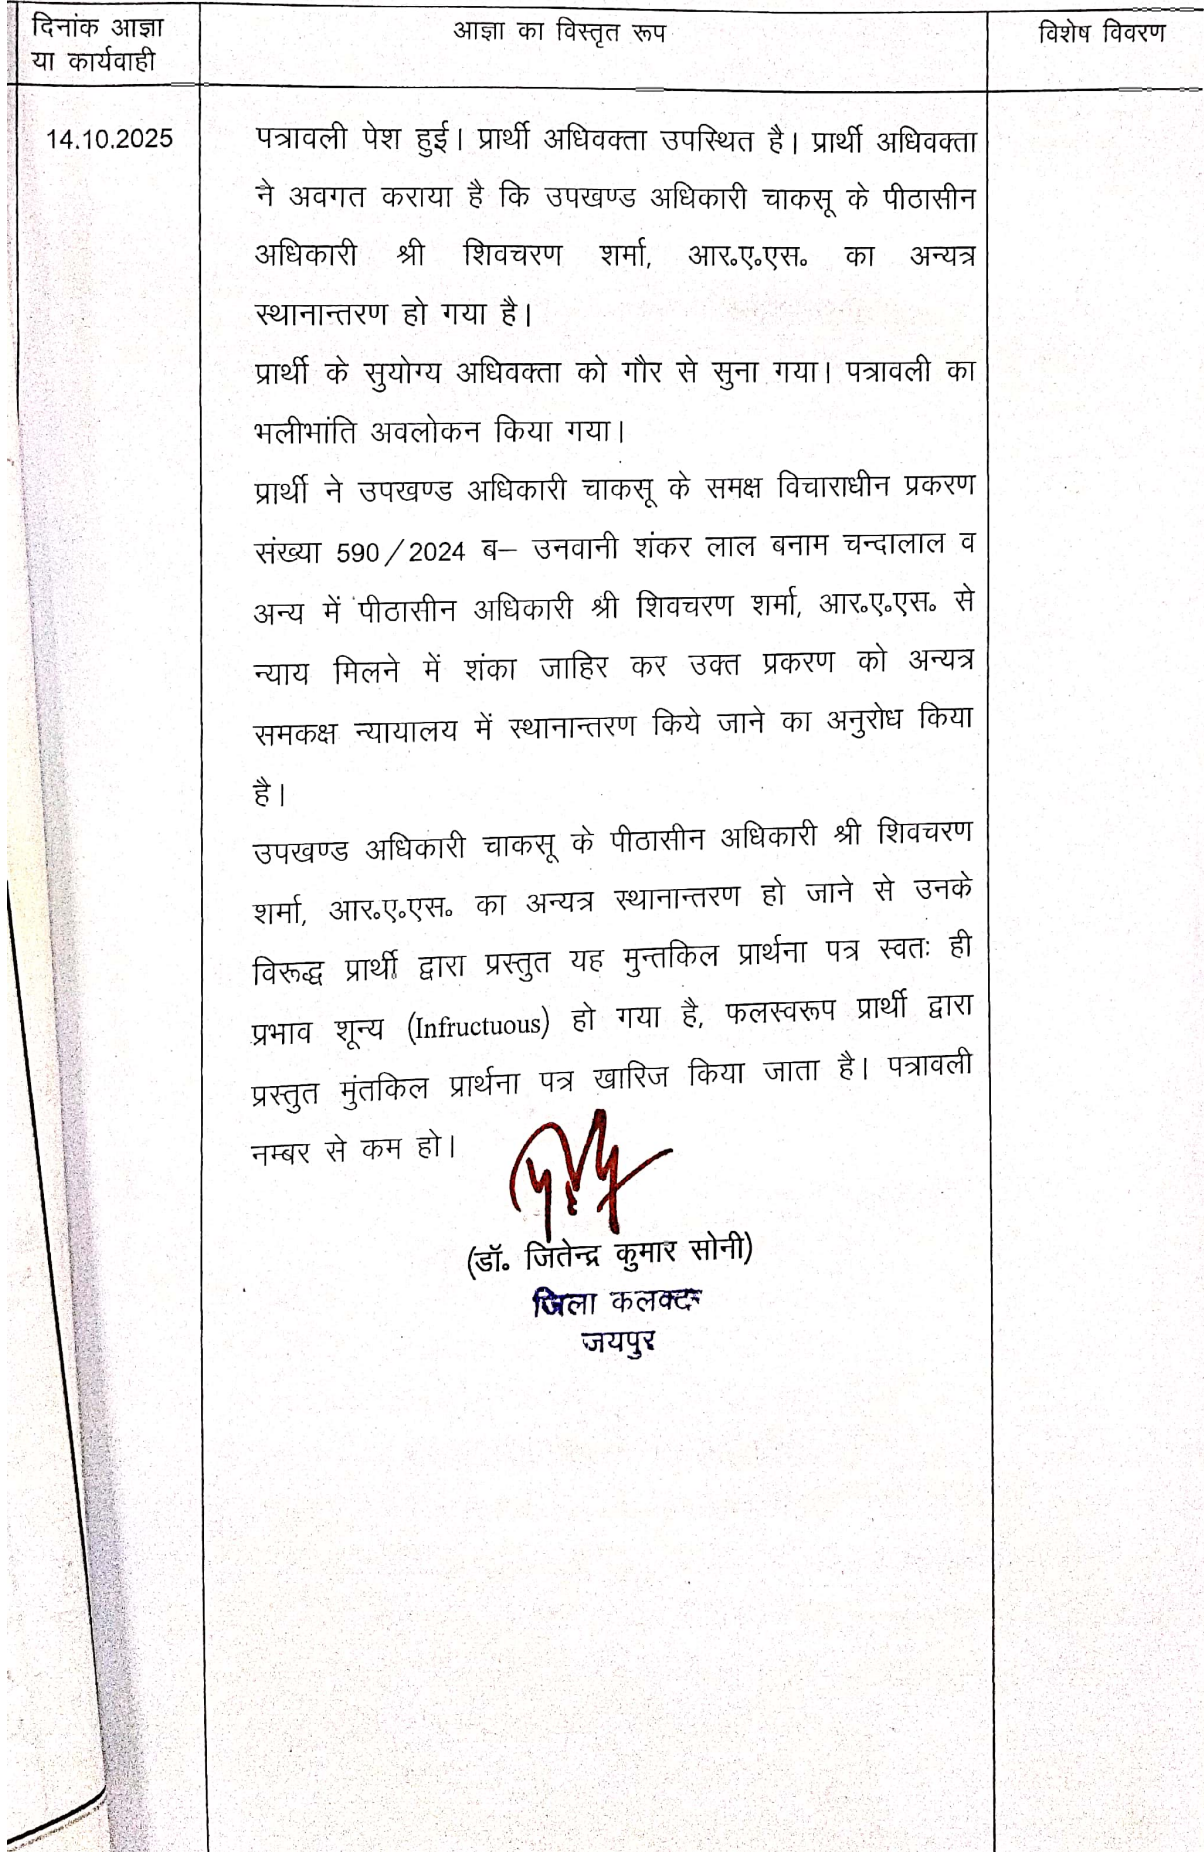 दिनांक आज्ञा
या कार्यवाही
आज्ञा का विस्तृत रूप
विशेष विवरण
14.10.2025
पत्रावली पेश हुई। प्रार्थी अधिवक्ता उपस्थित है। प्रार्थी अधिवक्ता
ने अवगत कराया है कि उपखण्ड अधिकारी चाकसू के पीठासीन
अधिकारी श्री शिवचरण शर्मा, आर॰ए॰एस॰ का अन्यत्र
स्थानान्तरण हो गया है।
प्रार्थी के सुयोग्य अधिवक्ता को गौर से सुना गया। पत्रावली का
भलीभांति अवलोकन किया गया।
प्रार्थी ने उपखण्ड अधिकारी चाकसू के समक्ष विचाराधीन प्रकरण
संख्या 590/2024 ब– उनवानी शंकर लाल बनाम चन्दालाल व
अन्य में पीठासीन अधिकारी श्री शिवचरण शर्मा, आर॰ए॰एस॰ से
न्याय मिलने में शंका जाहिर कर उक्त प्रकरण को अन्यत्र
समकक्ष न्यायालय में स्थानान्तरण किये जाने का अनुरोध किया
है।
उपखण्ड अधिकारी चाकसू के पीठासीन अधिकारी श्री शिवचरण
शर्मा, आर॰ए॰एस॰ का अन्यत्र स्थानान्तरण हो जाने से उनके
विरूद्ध प्रार्थी द्वारा प्रस्तुत यह मुन्तकिल प्रार्थना पत्र स्वतः ही
प्रभाव शून्य (Infructuous) हो गया है, फलस्वरूप प्रार्थी द्वारा
प्रस्तुत मुंतकिल प्रार्थना पत्र खारिज किया जाता है। पत्रावली
नम्बर से कम हो।
(डॉ॰ जितेन्द्र कुमार सोनी)
जिला कलक्टर
जयपुर